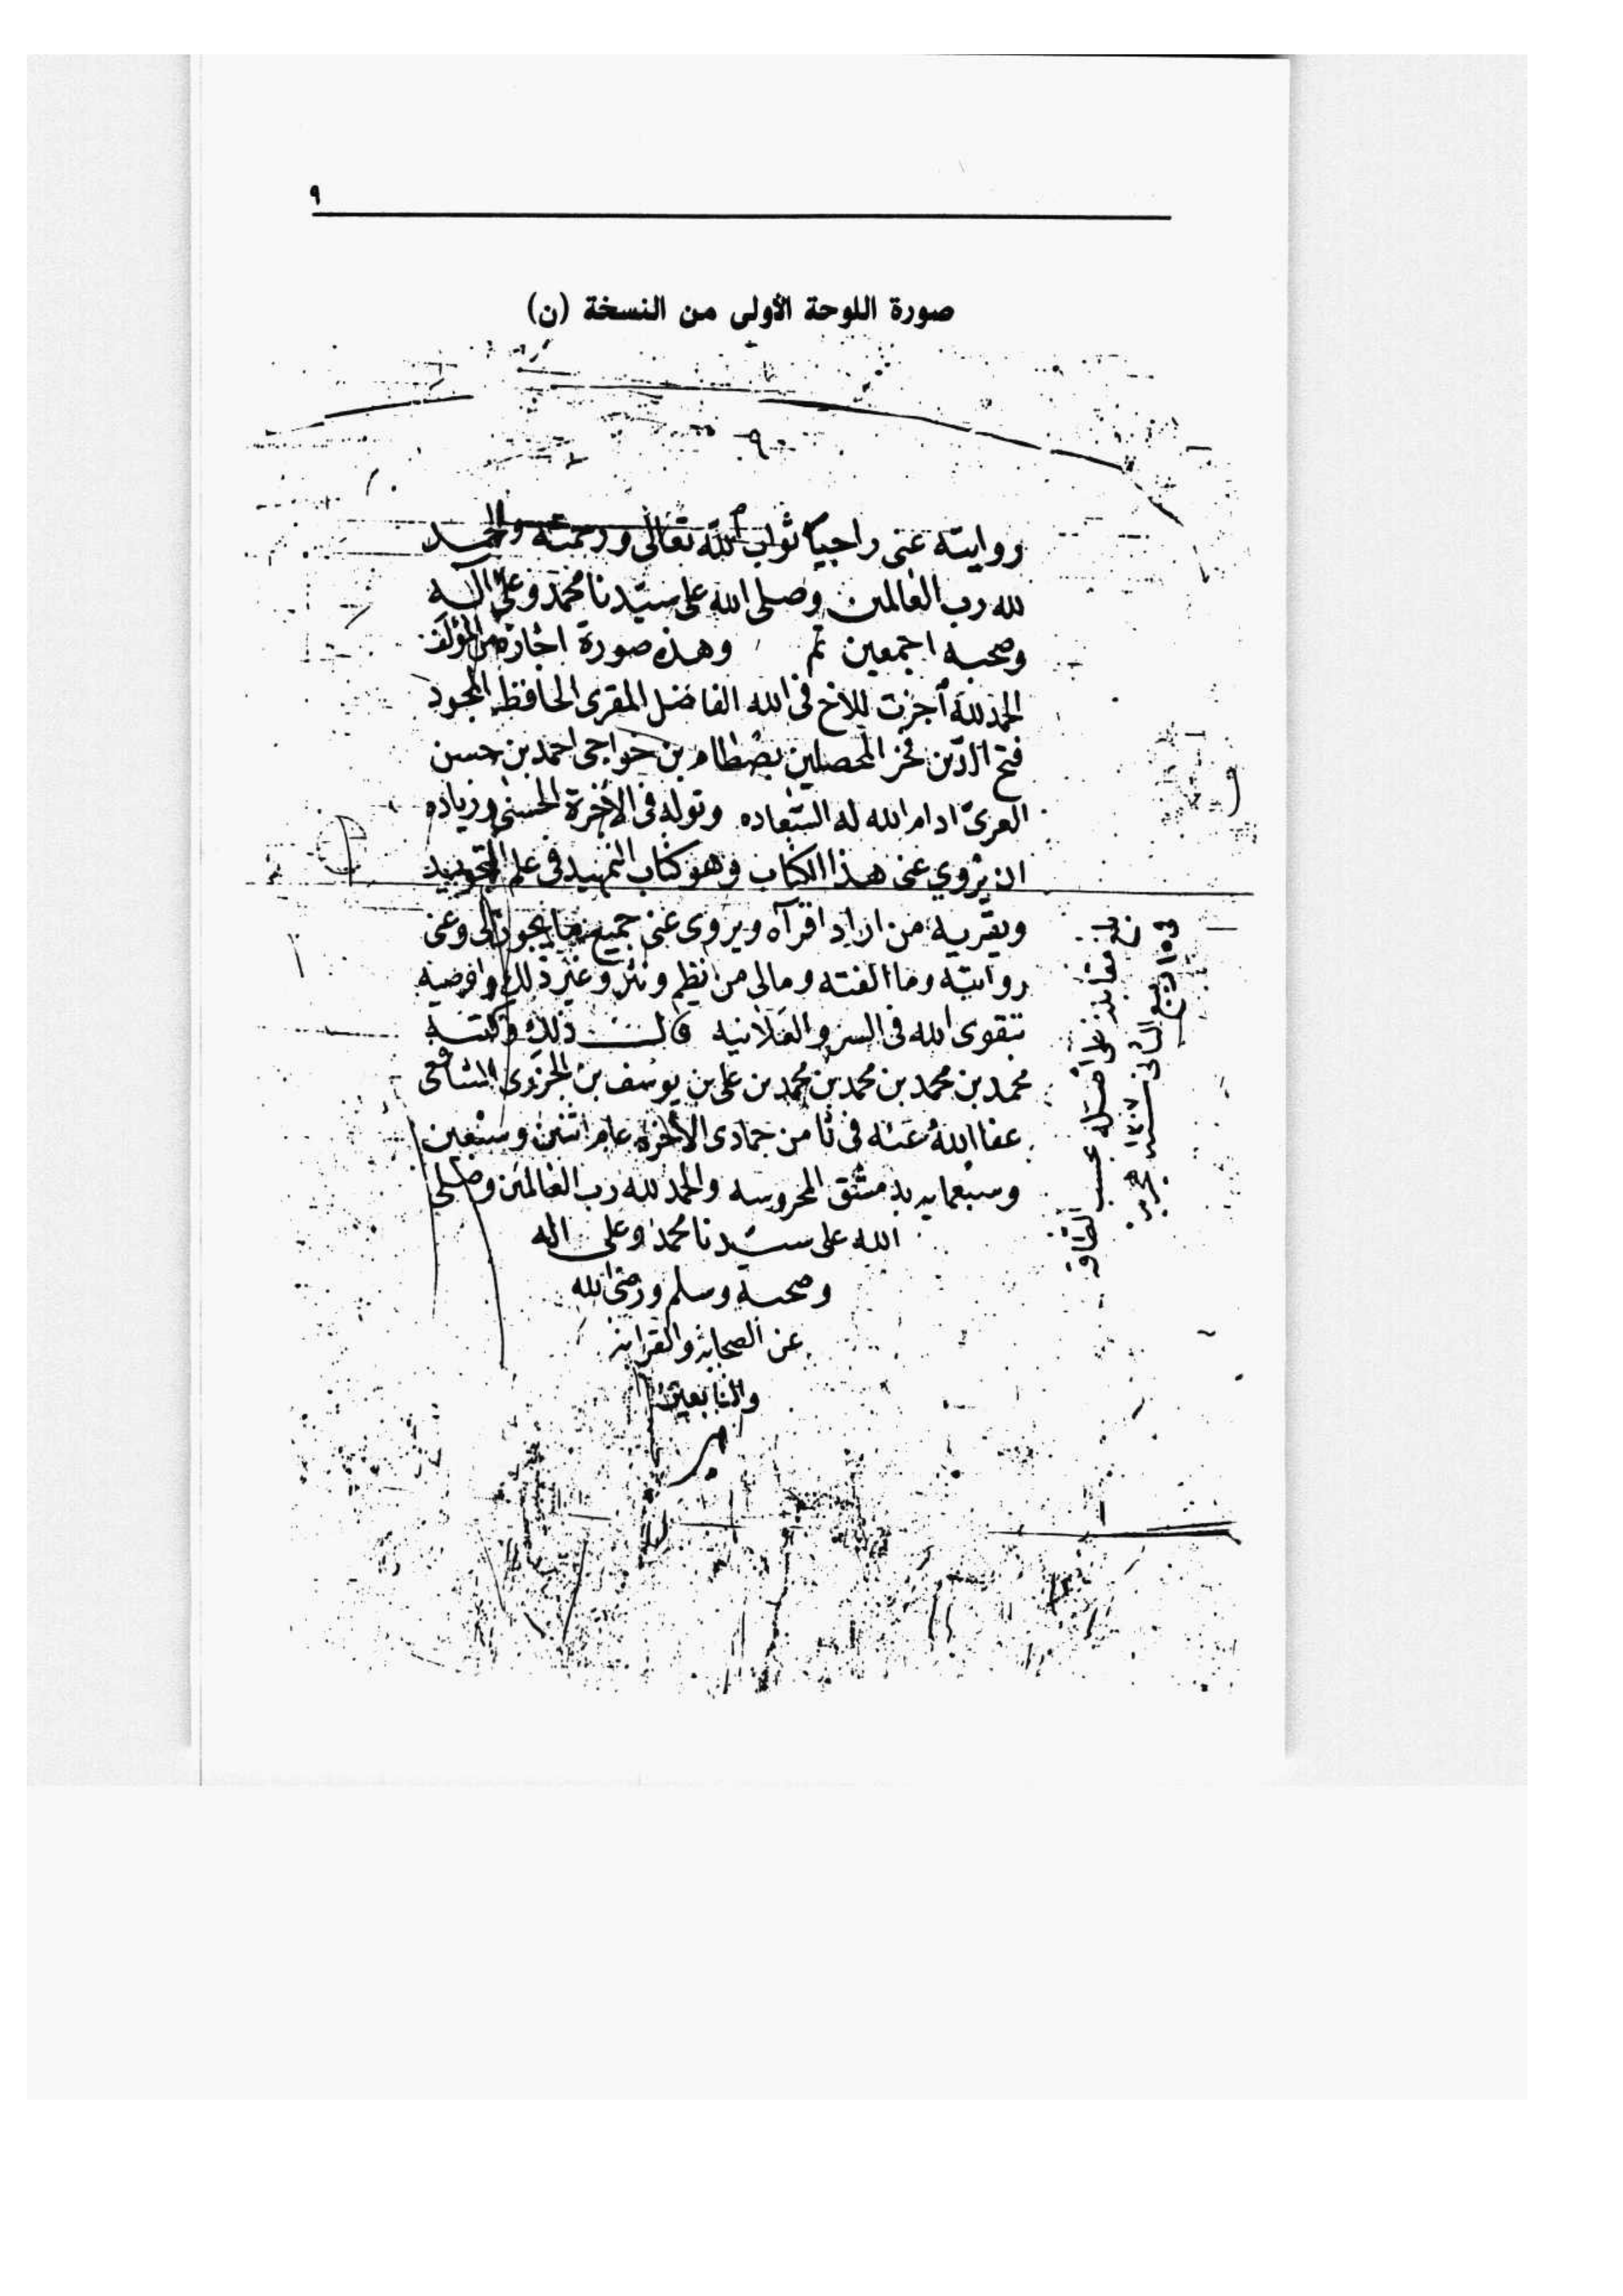 ٩
صورة اللوحة الأولى من النسخة (ن)
روايته عنى راجيا ثواب الله تعالى ورحمته والحمد
لله رب العالمين وصلى الله على سيدنا محمد وعلى اله
وصحبه اجمعين تم وهذه صورة اجازة من المؤلف
الحمد لله أجزت للاخ فى الله الفاضل المقرى الحافظ المجود
فتح الدين فخر المحصلين بصطام بن خواجى احمد بن حسن
ادام الله له السعاده وتوله فى الاخرة الحسنى وزياده
ان يروي عنى هذا الكتاب وهو كتاب التمهيد فى علم التجويد
ويقريه من اراد اقرآه ويروى عنى جميع ما يجوز لى وعنى
روايته وما الفته ومالى من نظم ونثر وغير ذلك واوصيه
بتقوى الله فى السر والعلانيه قال ذلك وكتبه
محمد بن محمد بن محمد بن محمد بن على بن يوسف بن الجزرى الشافعى
عفا الله عنه فى ثامن جمادى الاخره عام اثنين وسبعين
وسبعمايه بدمشق المحروسه والحمد لله رب العالمين وصلى
الله على سيدنا محمد وعلى اله
وصحبه وسلم ورضى الله
عن الصحابة والقرابة
والتابعين
بلغ مقابلة على اصله حسب الطاقة
فى ١٥ ربيع الثانى سنة ١٣٠٧ هجرية